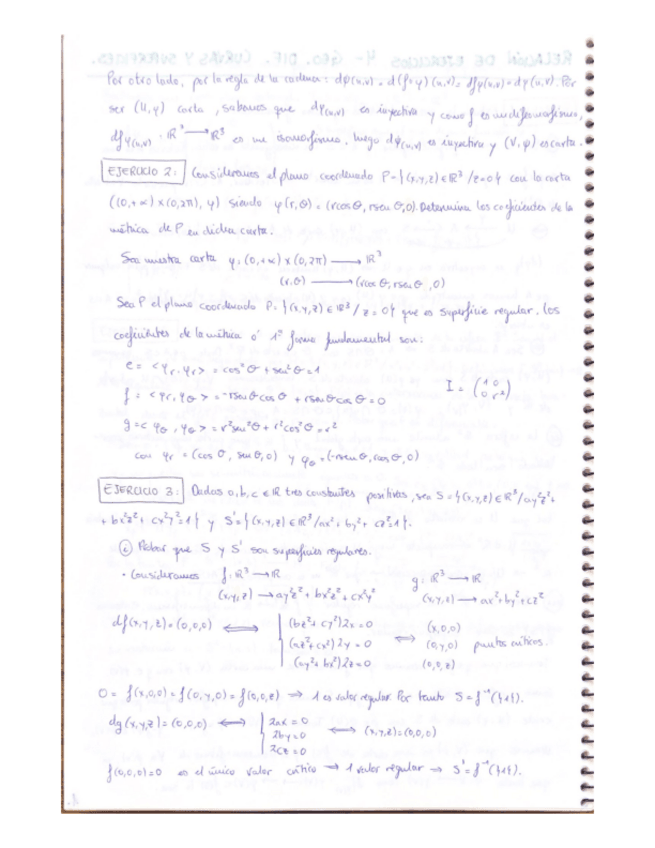 Por otro lado, por la regla de la cadena: dψ(u,v) = d(f∘φ)(u,v) = dfφ(u,v) ∘ dφ(u,v). Por
ser (U,φ) carta, sabemos que dφ(u,v) es inyectiva y como f es un difeomorfismo,
dfφ(u,v) : ℝ³ → ℝ³ es un isomorfismo, luego dψ(u,v) es inyectiva y (V,ψ) es carta.
EJERCICIO 2: Consideramos el plano coordenado P={(x,y,z)∈ℝ³/z=0} con la carta
((0,+∞)×(0,2π), φ) siendo φ(r,θ)=(rcosθ,rsenθ,0). Determina los coeficientes de la
métrica de P en dicha carta.
Sea nuestra carta φ:(0,+∞)×(0,2π) → ℝ³
(r,θ) → (rcosθ,rsenθ,0)
Sea P el plano coordenado P={(x,y,z)∈ℝ³/z=0} que es superficie regular. Los
coeficientes de la métrica o 1ª forma fundamental son:
e = <φr,φr> = cos²θ+sen²θ=1
f = <φr,φθ> = -rsenθcosθ + rsenθcosθ=0
I = (1 0
0 r²)
g = <φθ,φθ> = r²sen²θ+r²cos²θ=r²
con φr = (cosθ, senθ,0) y φθ=(-rsenθ,rcosθ,0)
EJERCICIO 3: Dados a,b,c∈ℝ tres constantes positivas, sea S={(x,y,z)∈ℝ³/ay²z²+
+bx²z²+cx²y²=1} y S'={(x,y,z)∈ℝ³/ax²+by²+cz²=1}.
(i) Probar que S y S' son superficies regulares.
· Consideramos f:ℝ³→ℝ g:ℝ³→ℝ
(x,y,z)→ay²z²+bx²z²+cx²y² (x,y,z)→ax²+by²+cz²
df(x,y,z)=(0,0,0) ⟺ { (bz²+cy²)2x=0 ⟺ (x,0,0)
(az²+cx²)2y=0 (0,y,0) puntos críticos.
(ay²+bx²)2z=0 (0,0,z)
0 = f(x,0,0)=f(0,y,0)=f(0,0,z) ⇒ 1 es valor regular. Por tanto S=f⁻¹({1}).
dg(x,y,z)=(0,0,0) ⟺ { 2ax=0
2by=0 ⟺ (x,y,z)=(0,0,0)
2cz=0
f(0,0,0)=0 es el único valor crítico → 1 valor regular → S'=f⁻¹({1}).